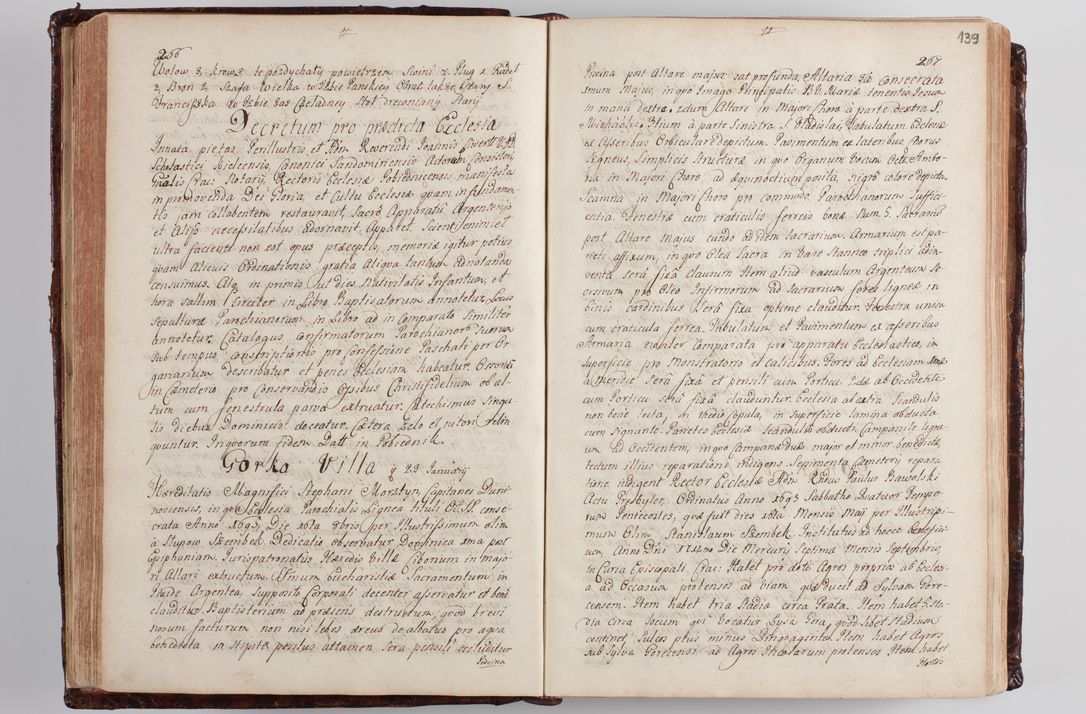 266
Wołow 8. krow 8 te pozdychały powietrzem Swini 7. Pług 1. Radel
2. Bron 2. Szafa wielka w Izbie Panskiey Obraz takze stary S.
Franciszka. w Izbie zas Czeladney Stoł drewniany Stary
Decretum pro prædicta Ecclesia
Innata pietas Perillustris et Adm Reverendi Joannis
Scholastici Kielcensis, Canonici Sandomiriensis Actorum Consistori
rialis Crac: Notarij Rectoris Ecclesiæ Pobiednicensis manifesta
in promovenda Dei Gloria, et Cultu Ecclesiæ quam in fundamen-
tis jam collabentem restauravit, Sacro Apparatu Argenterijs
et Alijs necessitatibus adornavit, apparet. Scienti enim et
ultra facienti non est opus præceptis, memoriæ igitur potius
quam alicuis Ordinationis gratia Aliqua tantum adnotanda
censuimus. Atq in primis Sut dies Nativitatis Infantium, et
hora saltim circiter in Libro Baptisatorum annotetur. Locus
Sepulturæ Parochianorum in Libro ad in Comparato Similiter
annotetur. Catalogus confirmatorum Parochianor suorum
sub tempus conscriptionis pro confessione Paschali per Or
ganarium Describatur et penes Ecclesiam habeatur.
in Cæmeterio pro Conservandis Ossibus Christifidelium ob al-
tum cum fenestrula parva extruatur. Catechismus singu
lis diebus Dominicis doceatur. Cætera zelo et nitori relin
quuntur. In quorum fidem Datt in Pobiednik.
Gorka Villa 23 January
Hæreditatis Magnifici Stephani Morstyn Capitanei Duni-
noviensis, in quo Ecclesia Parochialis Lignea tituli O.S.S. conse-
crata Anno 1695 Die 16ta 8bris per Illustrissimum olim
à Słupow Szembek. Dedicatio observatur Dominica 1ma post
Epiphaniam. Jurispatronatus Hæredis Villæ Ciborium in majo
ri Altari extructum. SSmum Eucharistiæ Sacramentum in
Pixide Argentea, Supposito Corporali decenter asservatur et bene
clauditur Baptisterium ad præsens destructum quod brevi
novum facturum non nisi lebes æreus de albatus pro aqua
benedicta in Stipite penitus attamen Sera pensili occluditur
Piscina

139
267
Piscina post Altare majus sat profunda, Altaria 3 Consecrata
1mum Majus, in quo Imago Principalis B.V. Mariæ tenentis Jesum
in manu dextra, 2dum Altare in Majori Choro à parte dextra S.
Michaelis, 3tium à parte Sinistra S. Vladislai, Tabulatum Ecclesiæ
ex Asseribus Orbiculare depictum. Pavimentum ex lateribus, Chorus
Ligneus, Simplicis Structuræ, in quo Organum Vocum Octo, Ambo-
na in Majori Choro, ad Æquinoctium posita, nigro colore depicta,
Scamna in Majori Choro pro commodo Parochianorum Suffici-
entia. Fenestræ cum craticulis ferreis bonæ Num 5. Sacrarium
post Altare majus eundo ad idem Sacrarium. Armarium est pa-
rieti affixum, in quo Olea Sacra in Vase Stanneo triplici adin-
venta Sera fixa clausum Item aliud vasculum Argenteum se-
orsivum pro Oleo Infirmorum Ad Sacrarium fores ligneæ in
binis cardinibus Sera fixa optime clauditur. Fenestra unica
cum craticula ferrea. Tabulatum et Pavimentum ex asseribus.
Armaria noviter comparata pro apparatu Ecclesiastico, in
superficie pro Monstratorio et calicibus. Fores ad Ecclesiam 1mæ
à meridie Sera fixa et pensili cum Porticu 2dæ ab Occidente
cum Porticu sera fixa clauduntur. Ecclesia ab extra Scandulis
non bene tecta, in medio Copula, in superficie lamina obducta
cum Signante. Parietes Ecclesiæ Scandulis obducti. Campanile lign-
um ad Occidentem, in quo Campanæ duæ major et minor benedictæ
tectum illius reparationi indigens Sepimenta Cæmeterij repara
tione indigent Rector Ecclesiæ Adm Rndus Paulus Bawolski
Actu Presbyter Ordinatus Anno 1695 Sabbatho Quatuor Tempo-
rum Pentecostes, quæ fuit dies 18ta Mensis Maij per Illustrissi-
mum Olim Stanislaum Szembek. Institutus ad hocce Benefici-
um Anno Dni Die Mercurij Septima Mensis Septembris
in Curia Episcopali Crac: Habet pro dote Agros proprios ab Ecclesi-
a ad Occasum protensos ad viam quæ ducit ad Sylvam Gore-
censem. Item habet tria Stadia circa Prata. Item habet Sta-
dia circa locum qui vocatur Lysa Gora, quod libet Stadium
continet Sulcos plus minus Quinquaginta. Item habet Agros
Sub Sylva Gorecensi ad Agros Incolarum protensos Item habet
Hortos